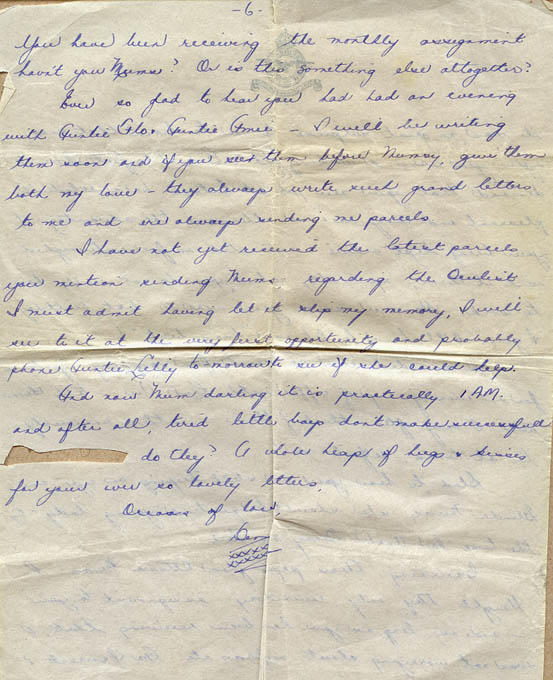 -6-
You have been receiving the monthly assignment
havn't you Mums? Or is this something else altogether?
Ever so glad to hear you had had an evening
with Auntie Flo & Auntie Amie - I will be writing
them soon and if you see them before Mumsy, give them
both my love - they always write such grand letters
to me and are always sending me parcels
I have not yet received the latest parcels
you mention sending Mums regarding the Oculist
I must admit having let it slip my memory, I will
see to it at the very first opportunity and probably
phone Auntie Lilly to-morrow to see if she could help.
And now Mum darling it is practically 1 AM.
and after all, tired little boys don't make successfull
do they? A whole heap of hugs & kisses
for your ever so lovely letters,
Oceans of love,
xxxxx
xxxxx